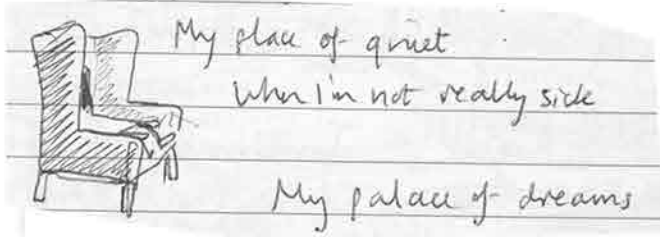 My place of quiet
When I'm not really sick
My palace of dreams